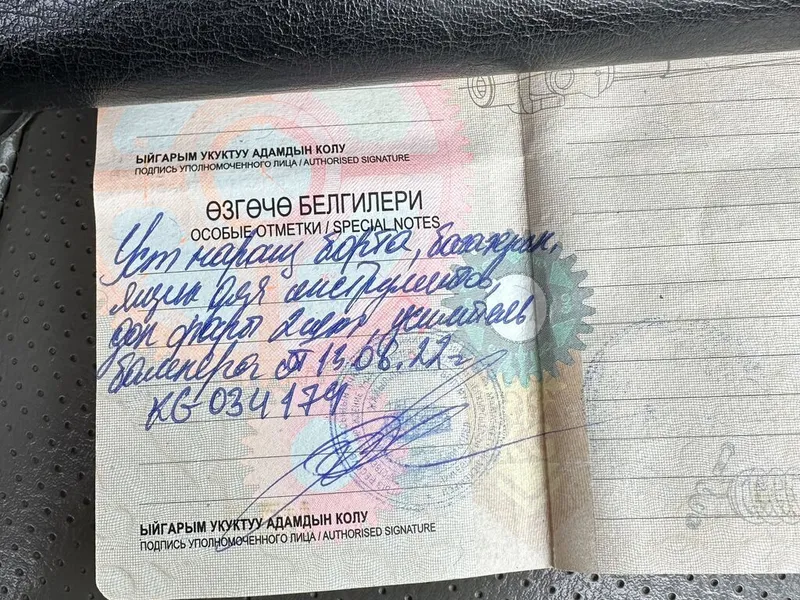 ЫЙГАРЫМ УКУКТУУ АДАМДЫН КОЛУ
ПОДПИСЬ УПОЛНОМОЧЕННОГО ЛИЦА / AUTHORISED SIGNATURE
ӨЗГӨЧӨ БЕЛГИЛЕРИ
ОСОБЫЕ ОТМЕТКИ / SPECIAL NOTES
Уст наращ борта, багажник,
ящик для инструментов,
доп фары 2шт, усилитель
бампера от 13.08.22 г
KG 034 179
ЫЙГАРЫМ УКУКТУУ АДАМДЫН КОЛУ
ПОДПИСЬ УПОЛНОМОЧЕННОГО ЛИЦА / AUTHORISED SIGNATURE